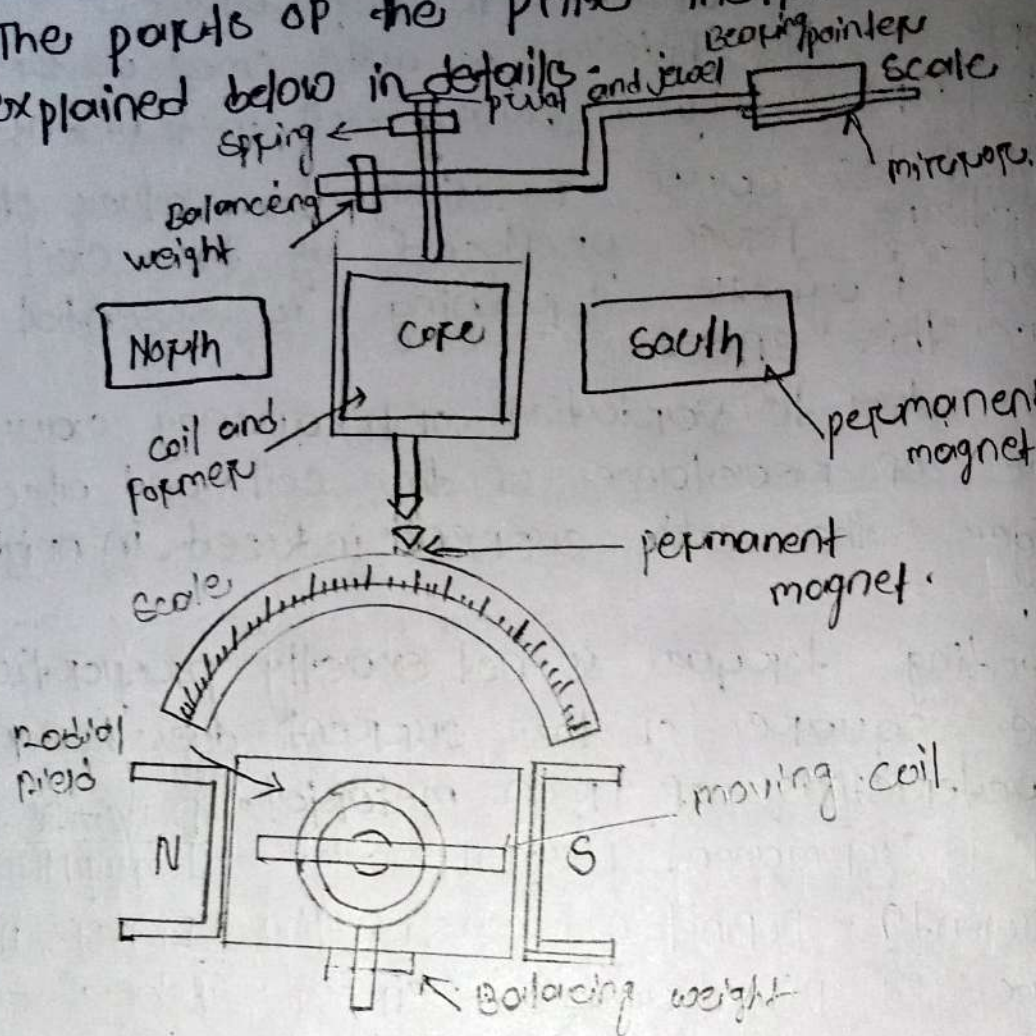 The parts of the
explained below in details:-
Bearing pointer
pivot and jewel
scale
spring
mirror.
Balancing
weight
North
core
south
permanen
magnet
coil and
former
permanent
magnet.
scale
Radial
field
moving coil.
N
S
Balacing weight